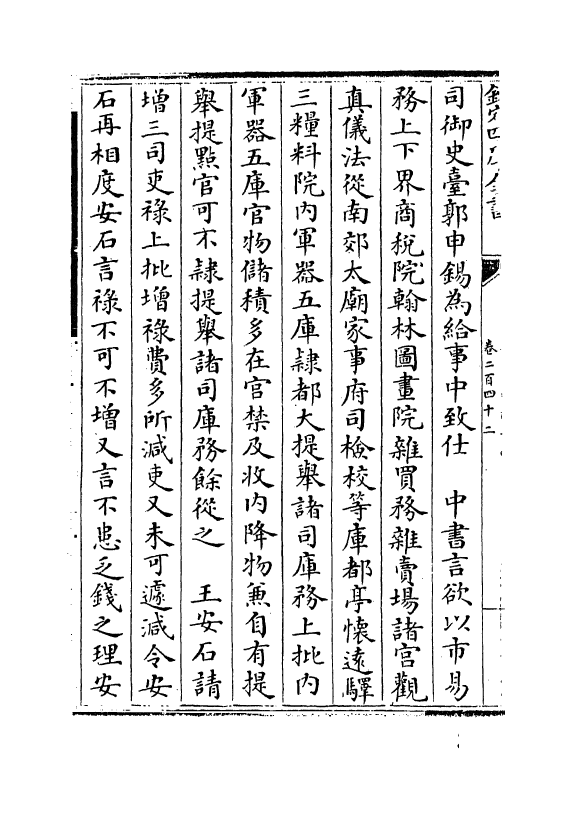 欽定四庫全書
卷二百四十二
司御史臺郭申錫為給事中致仕　中書言欲以市易
務上下界商稅院翰林圖畫院雜買務雜賣場諸宮觀
真儀法從南郊太廟家事府司檢校等庫都亭懷遠驛
三糧料院内軍器五庫隷都大提舉諸司庫務上批内
軍器五庫官物儲積多在宫禁及收内降物兼自有提
舉提㸃官可不隷提舉諸司庫務餘從之　王安石請
増三司吏禄上批増禄費多所減吏又未可遽減令安
石再相度安石言禄不可不增又言不患乏錢之理安